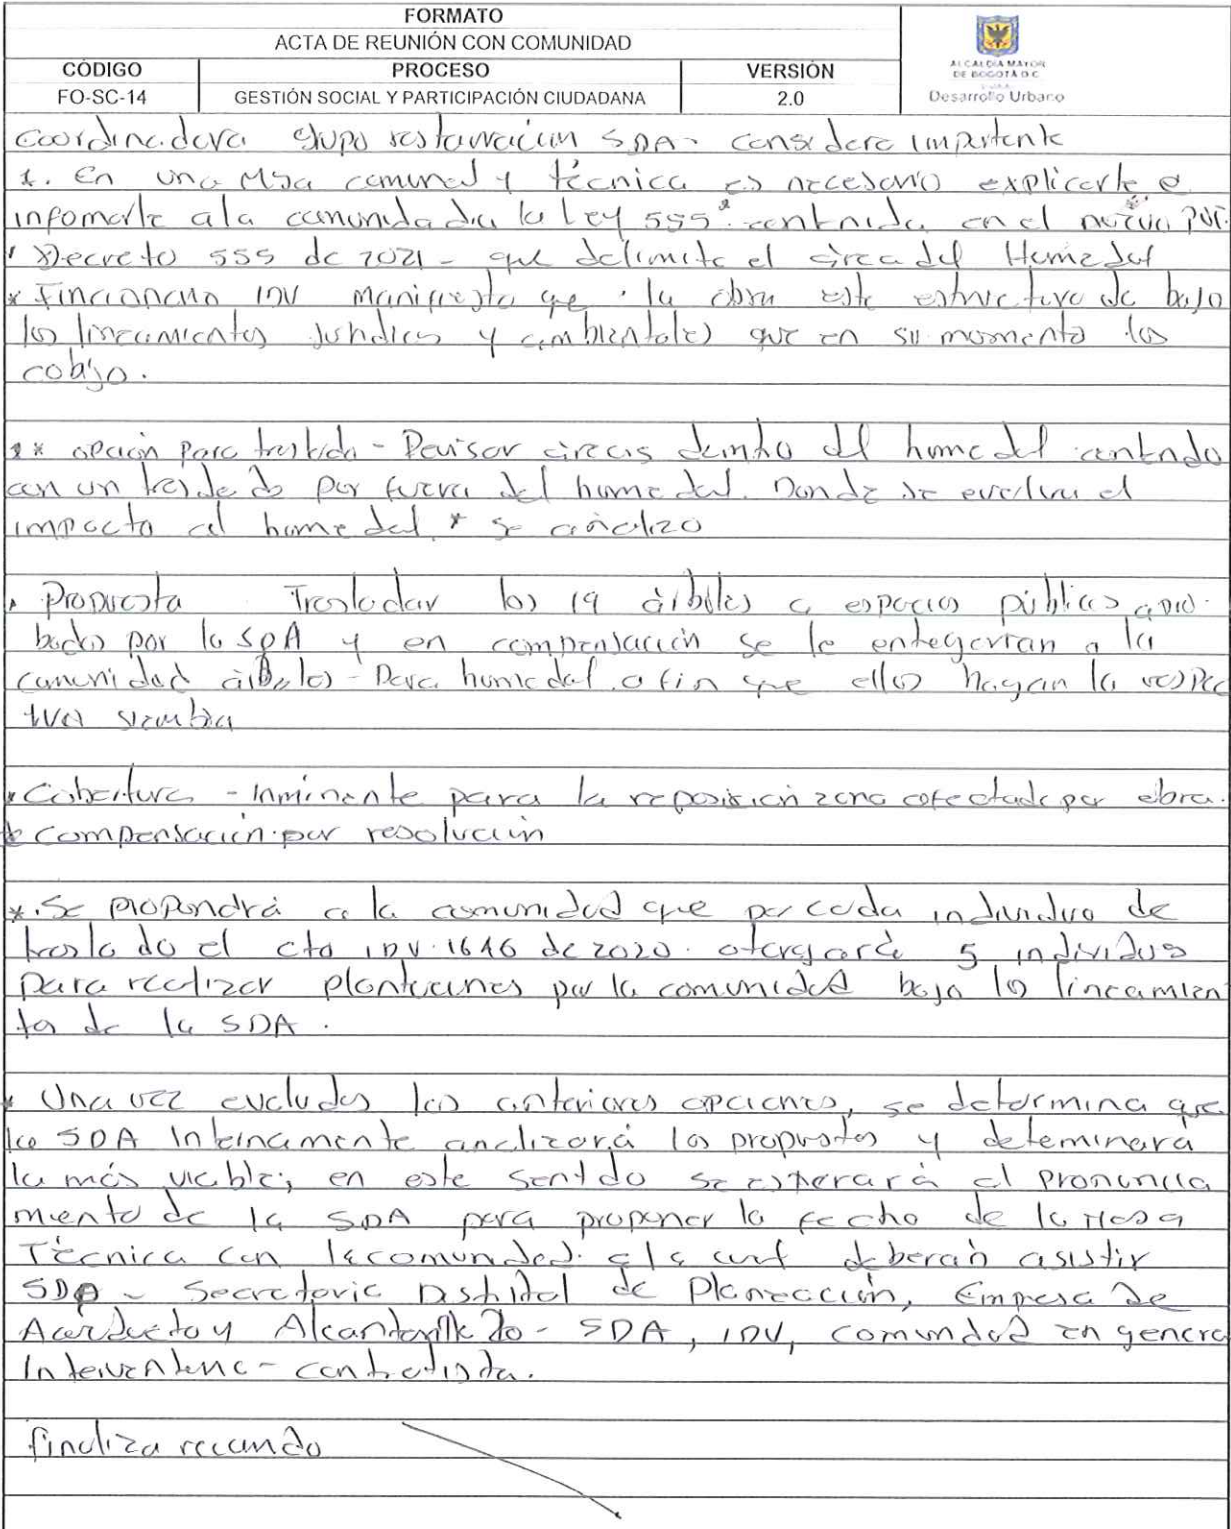 FORMATO
ACTA DE REUNIÓN CON COMUNIDAD
CÓDIGO PROCESO VERSIÓN
FO-SC-14 GESTIÓN SOCIAL Y PARTICIPACIÓN CIUDADANA 2.0
ALCALDÍA MAYOR
DE BOGOTÁ D.C.
Desarrollo Urbano
Coordinadora grupo restauracion SDA - considera importante
1. En una Mesa comunal y técnica es necesario explicarle e
infomarle a la comunidad la Ley 555 contenida en el nuevo POT.
Decreto 555 de 2021 - que delimita el área del Humedal
* Fincionario IDU manifiesta que la obra este estructurada bajo
los lineamientos juridicos y ambientales que en su momento los
cobijo.
** opción para traslado - Revisar áreas dentro del humedal contando
con un traslado por fuera del humedal. Donde se evalua el
impacto al humedal * se analizo
* Propuesta Trasladar los 19 árboles a espacios públicos apro
bados por la SDA y en compensación se le entegarian a la
comunidad árboles - Para humedal a fin que ellos hagan la respec
tiva siembra
* Cobertura - Inminente para la reposición zona afectada por obra.
* compensación por resolución
* Se propondrá a la comunidad que por cada individuo de
traslado el cto IDU 1646 de 2020 otorgará 5 individuos
para realizar plantaciones por la comunidad bajo los lineamien
tos de la SDA.
* Una vez evaluadas las anteriores opciones, se determina que
la SDA Internamente analizará las propuestas y deteminará
la más viable; en este sentido se esperará el pronuncia
miento de la SDA para proponer la fecha de la Mesa
Técnica con la comunidad a la cual deberán asistir
SDP - Secretaria Distrital de Planeación, Empresa de
Acueducto y Alcantarillado - SDA, IDU, comunidad en genera
Interventoria - contratista.
finaliza reunión